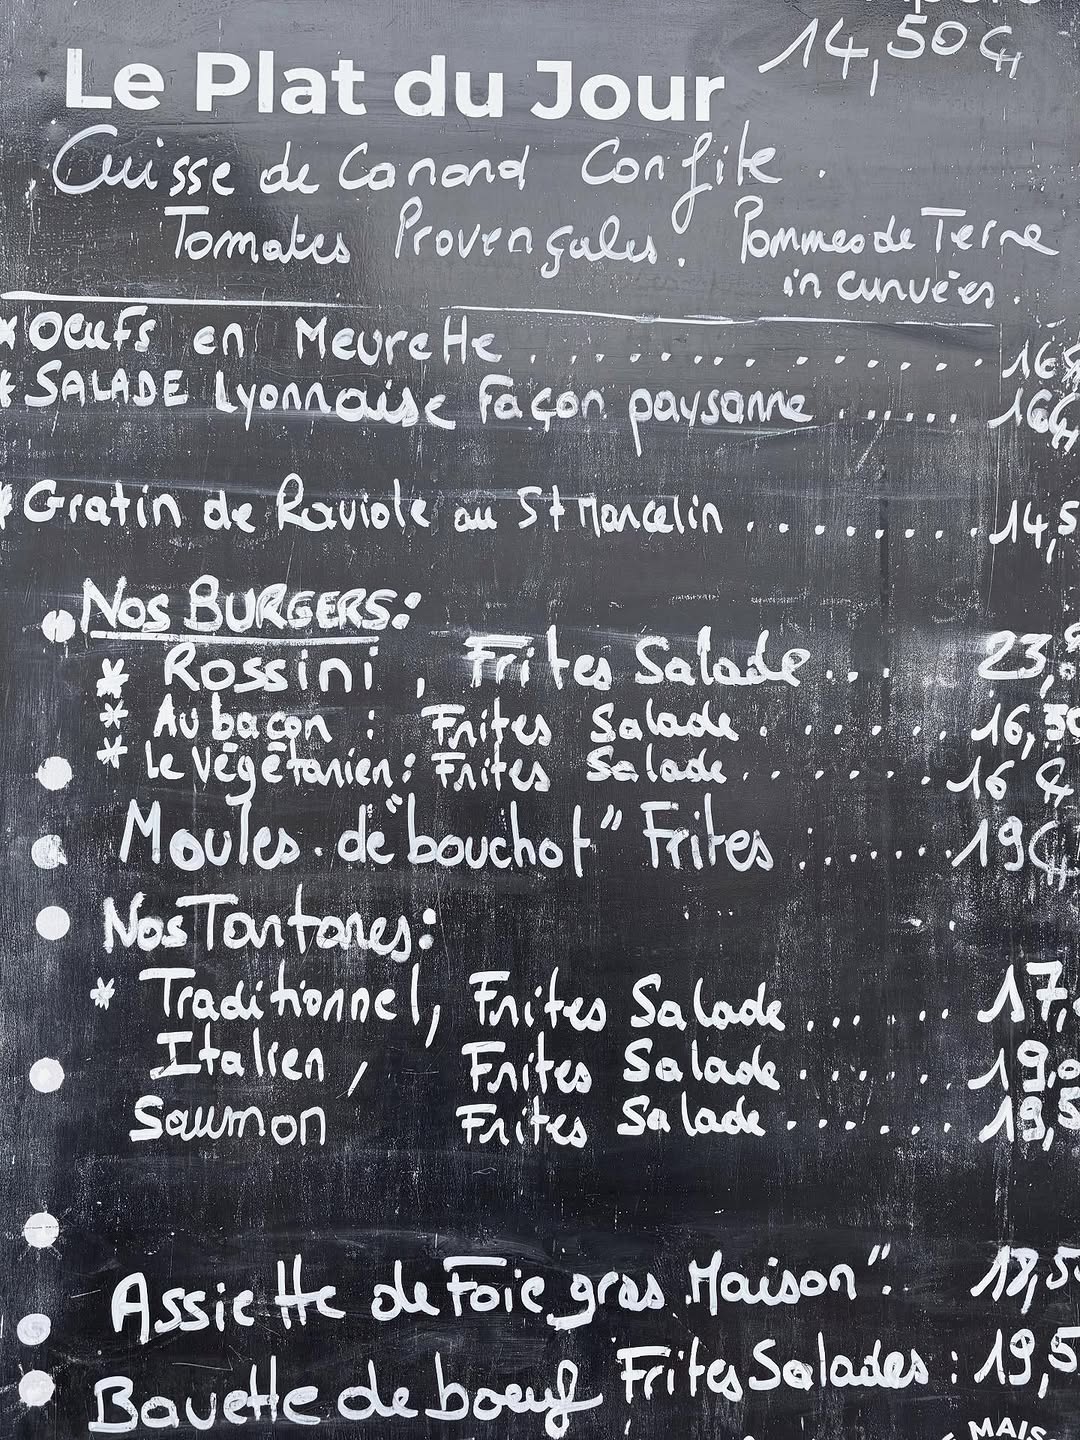 14,50 €
Le Plat du Jour
Cuisse de Canard Confite .
Tomates Provençales. Pommes de Terre
incurvées.
* OEUFS en Meurette .............. 16€
* SALADE Lyonnaise Façon paysanne ...... 16€
* Gratin de Raviole au St Marcelin ........ 14,5
Nos BURGERS:
* Rossini , Frites Salade ... 23,
* Au bacon : Frites Salade ....... 16,50
* Le végétarien : Frites Salade ....... 16 €
Moules de "bouchot" Frites ....... 19€
Nos Tartares:
* Traditionnel, Frites Salade ...... 17,
Italien , Frites Salade ...... 19,0
Saumon Frites Salade ...... 19,5
Assiette de Foie gras "Maison" : 18,5
Bavette de boeuf Frites Salades : 19,5
MAIS